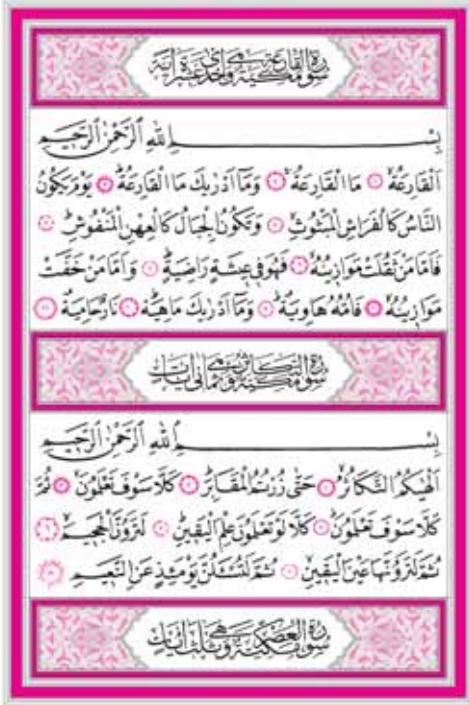 سورة القارعة مكية وهي احدى عشرة آية
بِسْمِ اللهِ الرَّحْمٰنِ الرَّحِيمِ
اَلْقَارِعَةُ ۙ ﴿١﴾ مَا الْقَارِعَةُ ۚ ﴿٢﴾ وَمَٓا اَدْرٰيكَ مَا الْقَارِعَةُ ۜ ﴿٣﴾ يَوْمَ يَكُونُ
النَّاسُ كَالْفَرَاشِ الْمَبْثُوثِ ۙ ﴿٤﴾ وَتَكُونُ الْجِبَالُ كَالْعِهْنِ الْمَنْفُوشِ ۜ ﴿٥﴾
فَاَمَّا مَنْ ثَقُلَتْ مَوَازِينُهُ ۙ ﴿٦﴾ فَهُوَ فِي عِيشَةٍ رَاضِيَةٍ ۜ ﴿٧﴾ وَاَمَّا مَنْ خَفَّتْ
مَوَازِينُهُ ۙ ﴿٨﴾ فَاُمُّهُ هَاوِيَةٌ ۜ ﴿٩﴾ وَمَٓا اَدْرٰيكَ مَا هِيَهْ ۜ ﴿١٠﴾ نَارٌ حَامِيَةٌ ﴿١١﴾
سورة التكاثر مكية وهي ثماني آيات
بِسْمِ اللهِ الرَّحْمٰنِ الرَّحِيمِ
اَلْهٰيكُمُ التَّكَاثُرُ ۙ ﴿١﴾ حَتّٰى زُرْتُمُ الْمَقَابِرَ ۜ ﴿٢﴾ كَلَّا سَوْفَ تَعْلَمُونَ ۙ ﴿٣﴾ ثُمَّ
كَلَّا سَوْفَ تَعْلَمُونَ ۜ ﴿٤﴾ كَلَّا لَوْ تَعْلَمُونَ عِلْمَ الْيَقِينِ ۜ ﴿٥﴾ لَتَرَوُنَّ الْجَحِيمَ ۙ ﴿٦﴾
ثُمَّ لَتَرَوُنَّهَا عَيْنَ الْيَقِينِ ۙ ﴿٧﴾ ثُمَّ لَتُسْـَٔلُنَّ يَوْمَئِذٍ عَنِ النَّعِيمِ ﴿٨﴾
سورة العصر مكية وهي ثلث آيات